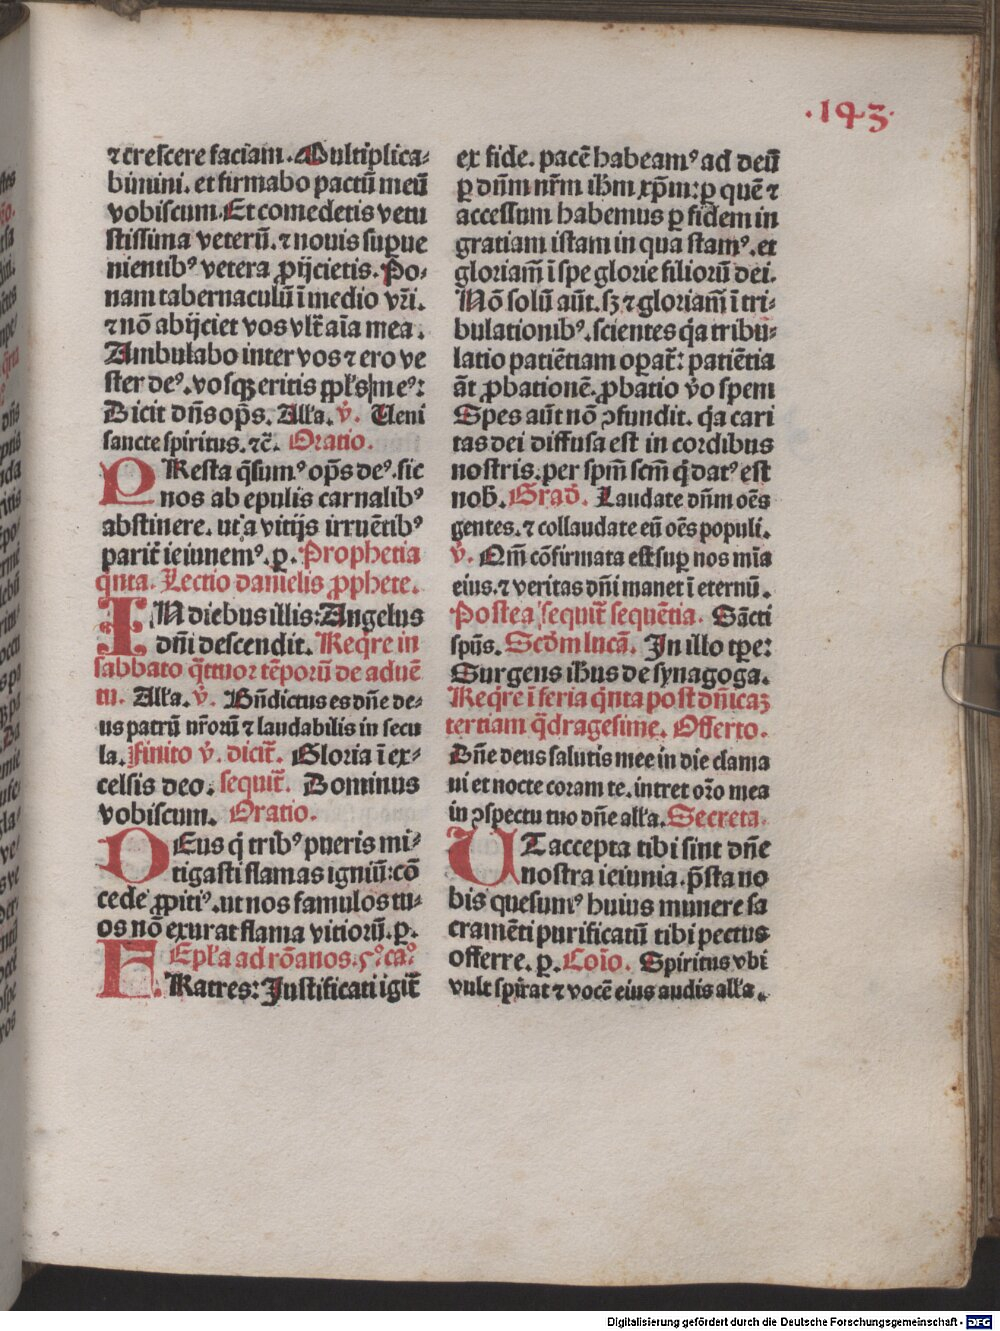 ·143·
⁊ crescere faciam. Multiplica⸗
bimini. et firmabo pactū meū
vobiscum. Et comedetis vetu
stissima veterū. ⁊ nouis supue
nientibꝰ vetera ꝓijcietis. Po⸗
nam tabernaculū ī medio vr̄i.
⁊ nō abijciet vos vlt̄ aīa mea.
Ambulabo inter vos ⁊ ero ve
ster deꝰ. vosqꝫ eritis ꝓpl̄s meꝰ:
Dicit dn̄s op̄s. All'a. v̄. Ueni
sancte spiritus. ⁊c̄. Oratio.
PResta q̄sumꝰ op̄s deꝰ. sic
nos ab epulis carnalibꝰ
abstinere. ut a vitijs irruētibꝰ
parit̄ ieiunemꝰ. p̲. Prophetia
qn̄ta. Lectio danielis ꝓphete.
IN diebus illis: Angelus
dn̄i descendit. Req̄re in
sabbato q̄ttuor tēporū de aduē
tu. All'a. v̄. Bn̄dictus es dn̄e de⸗
us patrū nr̄orū ⁊ laudabilis in secu
la. Finito v̄. dicit̄. Gloria ī ex⸗
celsis deo. sequit̄. Dominus
vobiscum. Oratio.
DEus q̄ tribꝰ pueris mi⸗
tigasti flamas igniū: cō
cede ꝓpitiꝰ. ut nos famulos tu⸗
os nō exurat flama vitiorū. p̲.
Epl'a ad rōanos. 5ꝰ. caꝰ
FRatres: Justificati igit̄
ex fide. pacē habeamꝰ ad deū
ꝑ dn̄m nr̄m ihm̄ xp̄m: ꝑ quē ⁊
accessum habemus ꝑ fidem in
gratiam istam in qua stamꝰ. et
gloriam̄ ī spe glorie filiorū dei.
Nō solū aūt. sꝫ ⁊ gloriam̄ ī tri⸗
bulationibꝰ. scientes q̄a tribu⸗
latio patiētiam operat̄: patiētia
āt ꝓbationē. ꝓbatio v̄o spem
Spes aūt nō ꝯfundit. q̄a cari
tas dei diffusa est in cordibus
nostris. per spm̄ scm̄ q̄ datꝰ est
nob̄. Grad̄. Laudate dn̄m oēs
gentes. ⁊ collaudate eū oēs populi.
v̄. Qm̄ cōfirmata est sup̲ nos mīa
eius. ⁊ veritas dn̄i manet ī eternū.
Postea sequit̄ sequētia. Sācti
spūs. Scdm̄ lucā. In illo tp̄e:
Surgens ihūs de synagoga.
Req̄re ī feria qn̄ta post dn̄icaꝫ
tertiam q̄dragesime. Offerto.
Dn̄e deus salutis mee in die clama
ui et nocte coram te. intret oro̅ mea
in ꝯspectu tuo dn̄e all'a. Secreta.
UT accepta tibi sint dn̄e
nostra ieiunia. p̄sta no
bis quesumꝰ huius munere sa
cramēti purificatū tibi pectus
offerre. p̲. Coīo. Spiritus vbi
vult spirat ⁊ vocē eius audis all'a.
Digitalisierung gefördert durch die Deutsche Forschungsgemeinschaft - DFG